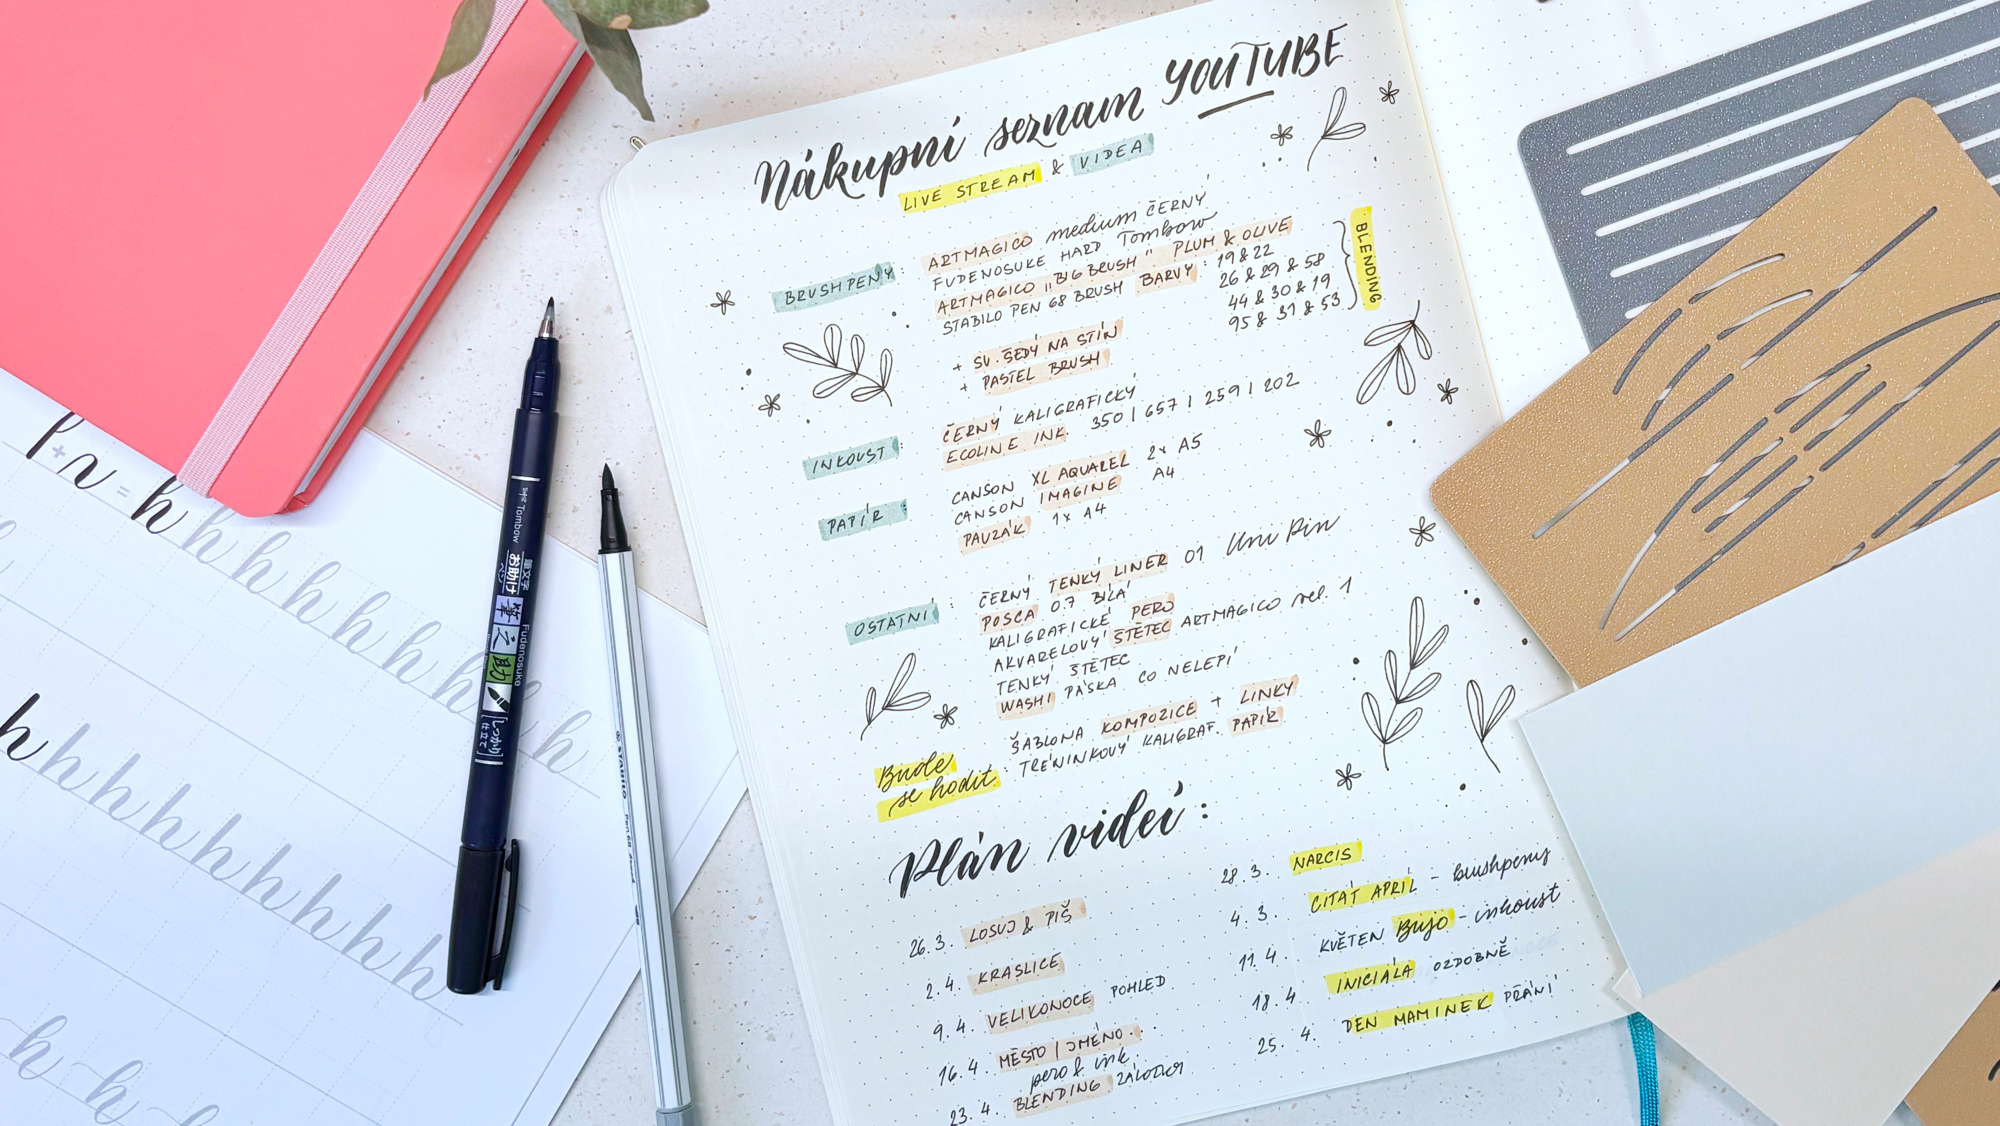 Nákupní seznam YOUTUBE
LIVE STREAM & VIDEA
BRUSHPENY: ARTMAGICO medium ČERNÝ
FUDENOSUKE HARD Tombow
ARTMAGICO „BIG BRUSH" PLUM & OLIVE
STABILO PEN 68 BRUSH BARVY: 19 & 22
26 & 29 & 58
44 & 30 & 19
95 & 31 & 53
BLENDING
+ SV. ŠEDÝ NA STÍN
+ PASTEL BRUSH
INKOUST: ČERNÝ KALIGRAFICKÝ
ECOLINE INK 350 | 657 | 259 | 202
PAPÍR: CANSON XL AQUAREL 2x A5
CANSON IMAGINE A4
PAUZÁK 1x A4
OSTATNÍ: ČERNÝ TENKÝ LINER 01 Uni Pin
POSCA 0.7 BÍLÁ
KALIGRAFICKÉ PERO
AKVARELOVÝ ŠTĚTEC ARTMAGICO vel. 1
TENKÝ ŠTĚTEC
WASHI PÁSKA CO NELEPÍ
Bude se hodit: ŠABLONA KOMPOZICE + LINKY
TRÉNINKOVÝ KALIGRAF. PAPÍR
Plán videí:
26.3. LOSUJ & PIŠ
2.4. KRASLICE
9.4. VELIKONOCE POHLED
16.4. MĚSTO | JMÉNO..
pero & ink.
23.4. BLENDING ZÁLOŽKA
28.3. NARCIS
4.3. CITÁT APRÍL - brushpeny
11.4 KVĚTEN BuJo - inkoust
18.4 INICIÁLA OZDOBNĚ
25.4. DEN MAMINEK PŘÁNÍ
Tombow
筆文字
お助け
ペン
筆之助
Fudenosuke
[しっかり仕立て]
STABILO Pen 68
p + n = h h h h h h h h h
h h h h h h h h h
h h